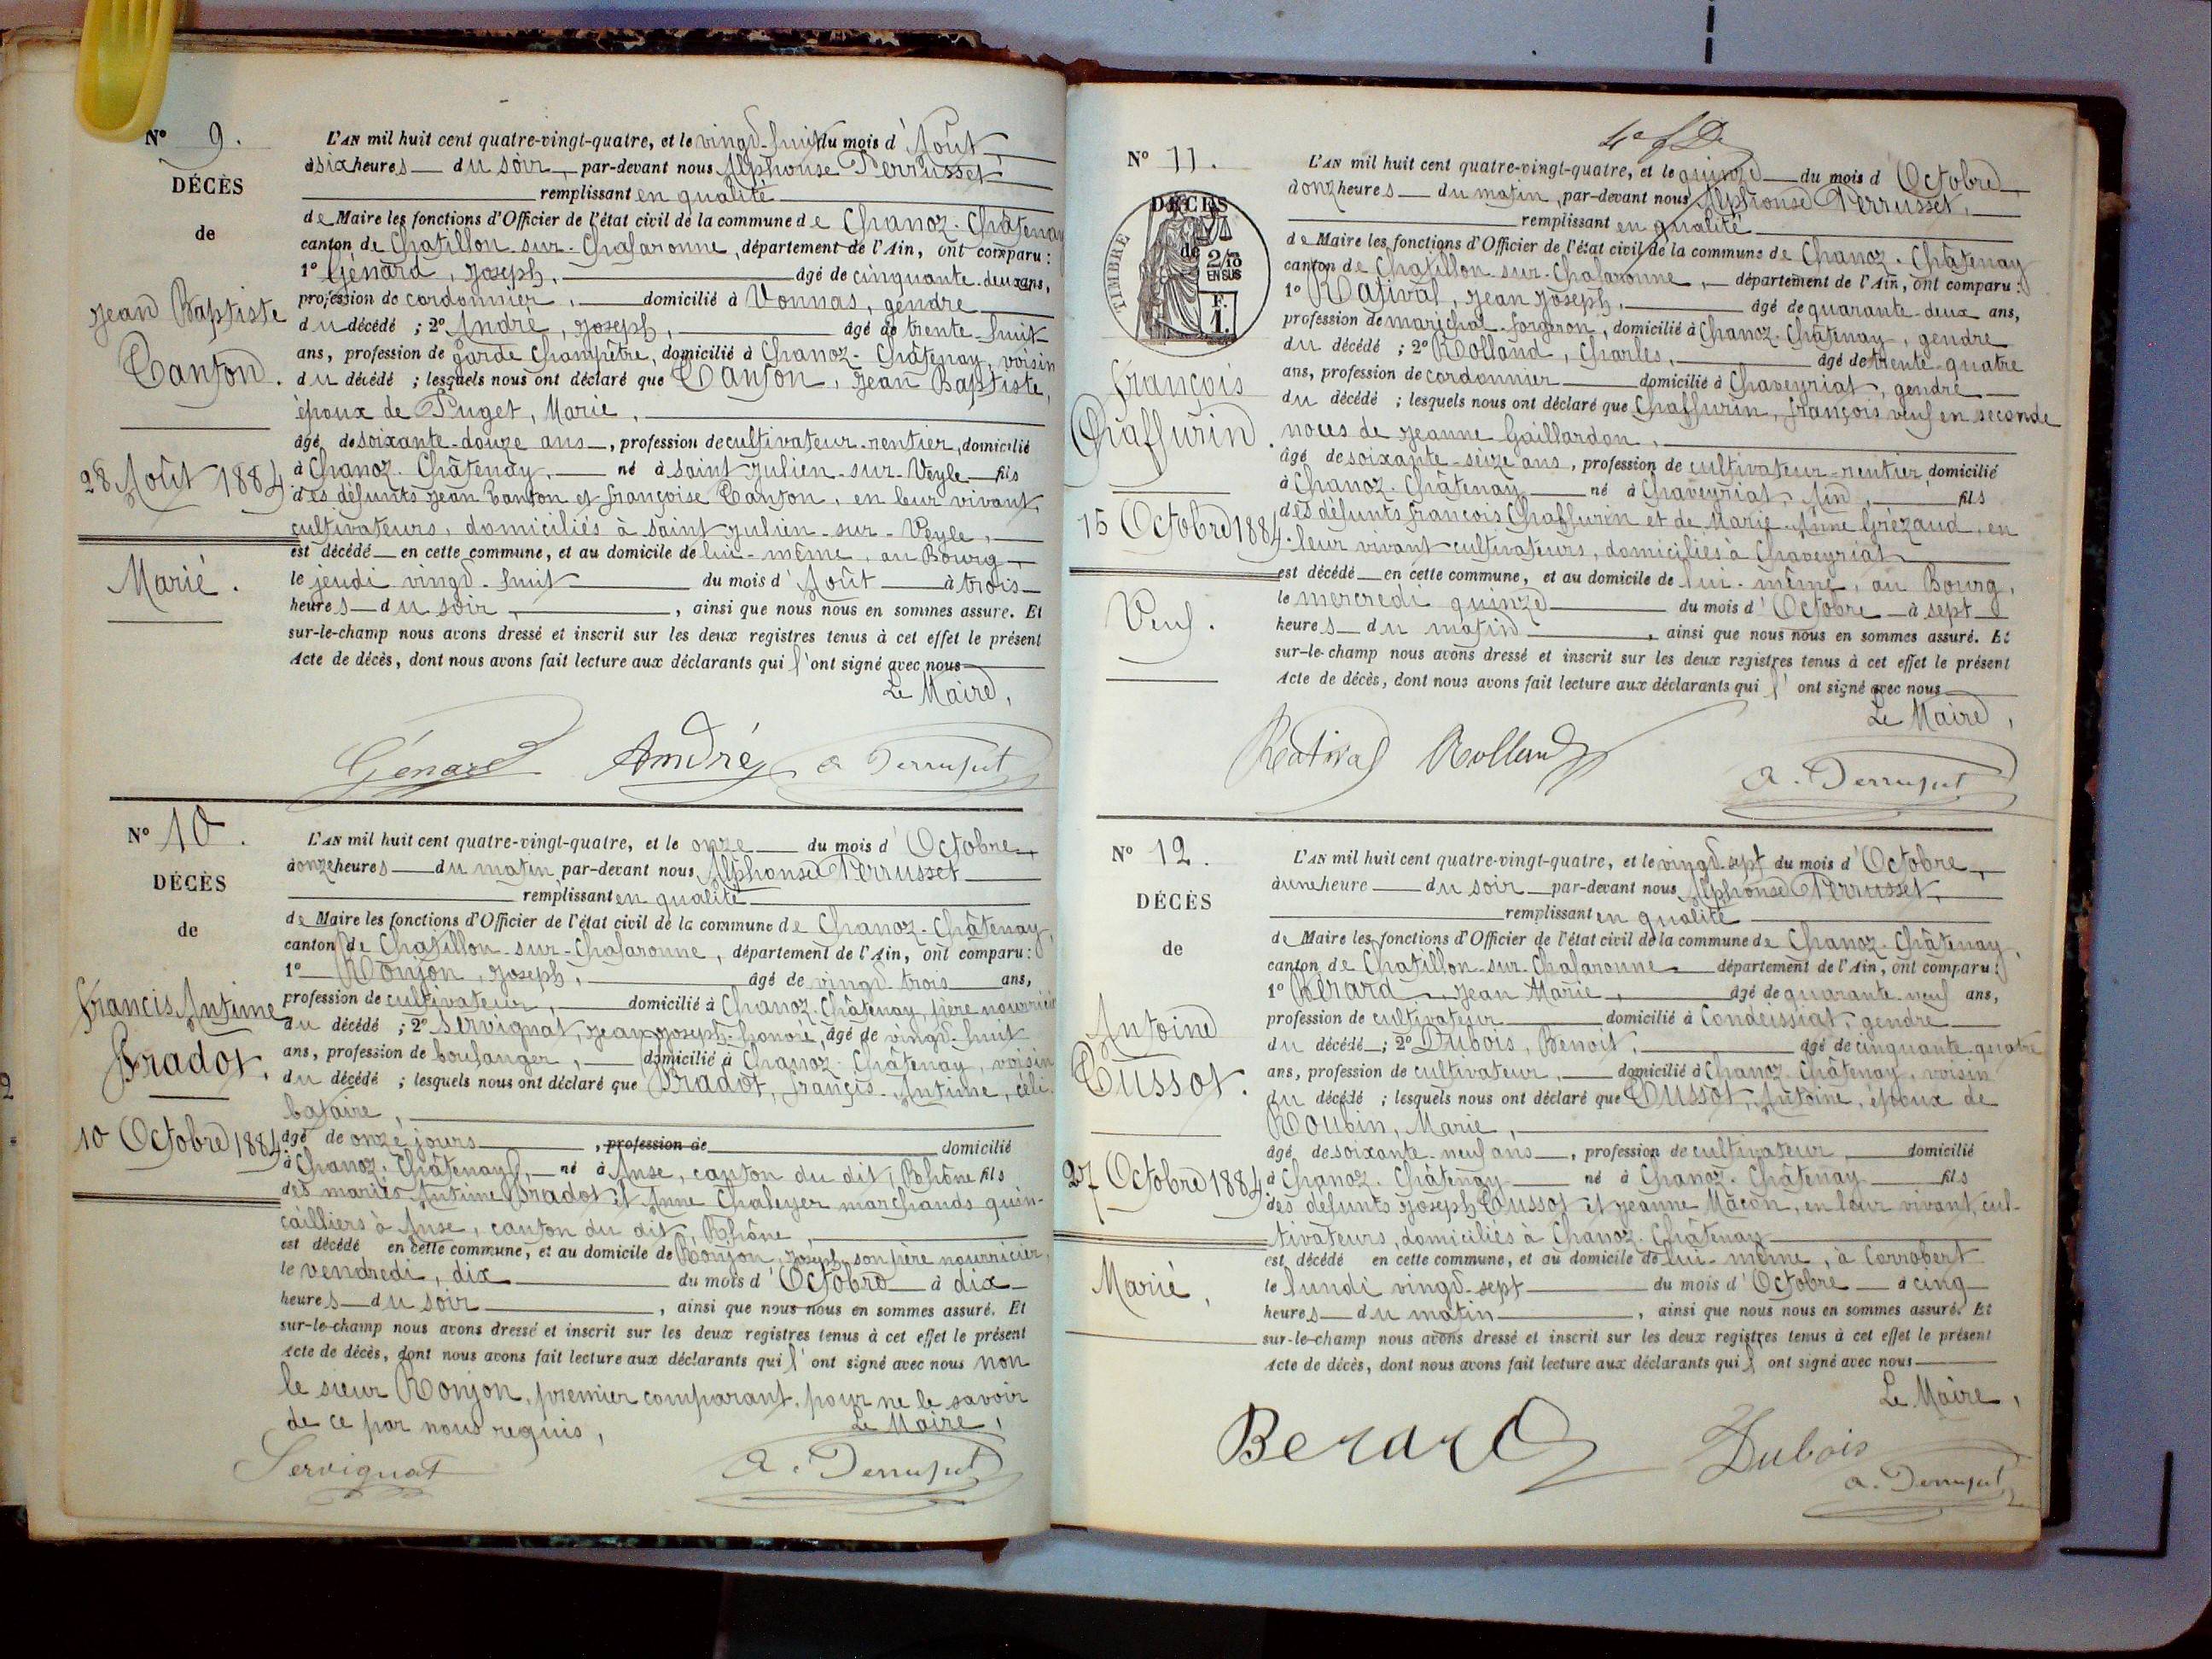 N° 9.
DÉCÈS
de
Jean Baptiste
Canton.
28 Août 1884
Marié.
L'AN mil huit cent quatre-vingt-quatre, et le vingt-huit du mois d'Août
à six heures du soir, par-devant nous Alphonse Perrusset
remplissant en qualité
de Maire les fonctions d'Officier de l'état civil de la commune de Chanoz-Châtenay
canton de Chatillon-sur-Chalaronne, département de l'Ain, ont comparu :
1° Génard, Joseph, âgé de cinquante-deux ans,
profession de cordonnier, domicilié à Vonnas, gendre
du décédé ; 2° André, Joseph, âgé de trente-huit
ans, profession de garde champêtre, domicilié à Chanoz-Châtenay, voisin
du décédé ; lesquels nous ont déclaré que Canton, Jean Baptiste,
époux de Puget, Marie,
âgé de soixante-douze ans, profession de cultivateur-rentier, domicilié
à Chanoz-Châtenay, né à saint Julien-sur-Veyle fils
des défunts Jean Canton et françoise Canton, en leur vivant,
cultivateurs, domiciliés à saint Julien-sur-Veyle,
est décédé en cette commune, et au domicile de lui-même, au Bourg
le jeudi vingt-huit du mois d'Août à trois
heures du soir, ainsi que nous nous en sommes assuré. Et
sur-le-champ nous avons dressé et inscrit sur les deux registres tenus à cet effet le présent
Acte de décès, dont nous avons fait lecture aux déclarants qui l'ont signé avec nous
Le Maire,
Génard André A Perrusset
N° 10.
DÉCÈS
de
Francis Antime
Pradot.
10 Octobre 1884.
L'AN mil huit cent quatre-vingt-quatre, et le onze du mois d'Octobre
à onze heures du matin par-devant nous Alphonse Perrusset
remplissant en qualité
de Maire les fonctions d'Officier de l'état civil de la commune de Chanoz-Châtenay,
canton de Chatillon-sur-Chalaronne, département de l'Ain, ont comparu :
1° Ronjon, Joseph, âgé de vingt-trois ans,
profession de cultivateur, domicilié à Chanoz-Châtenay, père nourricier
du décédé ; 2° Servignat, Jean-Joseph-honoré, âgé de vingt-huit
ans, profession de boulanger, domicilié à Chanoz-Châtenay, voisin
du décédé ; lesquels nous ont déclaré que Pradot, francis-Antime, céli-
bataire,
âgé de onze jours, profession de domicilié
à Chanoz-Châtenay, né à Anse, canton du dit, Rhône fils
des mariés Antime Pradot et Anne Chaleyer marchands quin-
cailliers à Anse, canton du dit, Rhône,
est décédé en cette commune, et au domicile de Ronjon, Joseph, son père nourricier,
le vendredi, dix du mois d'Octobre à dix
heures du soir, ainsi que nous nous en sommes assuré. Et
sur-le-champ nous avons dressé et inscrit sur les deux registres tenus à cet effet le présent
Acte de décès, dont nous avons fait lecture aux déclarants qui l'ont signé avec nous non
le sieur Ronjon, premier comparant, pour ne le savoir
de ce par nous requis,
Le Maire,
Servignat A. Perrusset
N° 11.
DÉCÈS
de
TIMBRE
2/10 EN SUS
F. 1.
François
Chaffurin.
15 Octobre 1884.
Veuf.
L'AN mil huit cent quatre-vingt-quatre, et le quinze du mois d'Octobre
à onze heures du matin, par-devant nous Alphonse Perrusset,
remplissant en qualité
de Maire les fonctions d'Officier de l'état civil de la commune de Chanoz-Châtenay
canton de Chatillon-sur-Chalaronne, département de l'Ain, ont comparu :
1° Rativat, Jean Joseph, âgé de quarante-deux ans,
profession de maréchal-forgeron, domicilié à Chanoz-Châtenay, gendre
du décédé ; 2° Rolland, Charles, âgé de trente-quatre
ans, profession de cordonnier domicilié à Chaveyriat, gendre
du décédé ; lesquels nous ont déclaré que Chaffurin, françois veuf en seconde
noces de Jeanne Gaillardon,
âgé de soixante-seize ans, profession de cultivateur-rentier, domicilié
à Chanoz-Châtenay né à Chaveyriat, Ain, fils
des défunts françois Chaffurin et de Marie-Anne Grézaud, en
leur vivant cultivateurs, domiciliés à Chaveyriat
est décédé en cette commune, et au domicile de lui-même, au Bourg,
le mercredi quinze du mois d'Octobre à sept
heures du matin, ainsi que nous nous en sommes assuré. Et
sur-le-champ nous avons dressé et inscrit sur les deux registres tenus à cet effet le présent
Acte de décès, dont nous avons fait lecture aux déclarants qui l'ont signé avec nous
Le Maire,
Rativat Rolland
A. Perrusset
N° 12.
DÉCÈS
de
Antoine
Cussot.
27 Octobre 1884.
Marié,
L'AN mil huit cent quatre-vingt-quatre, et le vingt-sept du mois d'Octobre,
à une heure du soir par-devant nous Alphonse Perrusset,
remplissant en qualité
de Maire les fonctions d'Officier de l'état civil de la commune de Chanoz-Châtenay
canton de Chatillon-sur-Chalaronne département de l'Ain, ont comparu :
1° Bérard, Jean Marie, âgé de quarante-neuf ans,
profession de cultivateur domicilié à Condeissiat, gendre
du décédé ; 2° Dubois, Benoit, âgé de cinquante-quatre
ans, profession de cultivateur, domicilié à Chanoz-Châtenay, voisin
du décédé ; lesquels nous ont déclaré que Cussot, Antoine, époux de
Roubin, Marie,
âgé de soixante-neuf ans, profession de cultivateur, domicilié
à Chanoz-Châtenay né à Chanoz-Châtenay fils
des défunts Joseph Cussot et Jeanne Mâcon, en leur vivant, cul-
tivateurs, domiciliés à Chanoz-Châtenay
est décédé en cette commune, et au domicile de lui-même, à Corrobert
le lundi vingt-sept du mois d'Octobre à cinq
heures du matin, ainsi que nous nous en sommes assuré. Et
sur-le-champ nous avons dressé et inscrit sur les deux registres tenus à cet effet le présent
Acte de décès, dont nous avons fait lecture aux déclarants qui l'ont signé avec nous
Le Maire,
Berard Dubois
A. Perrusset